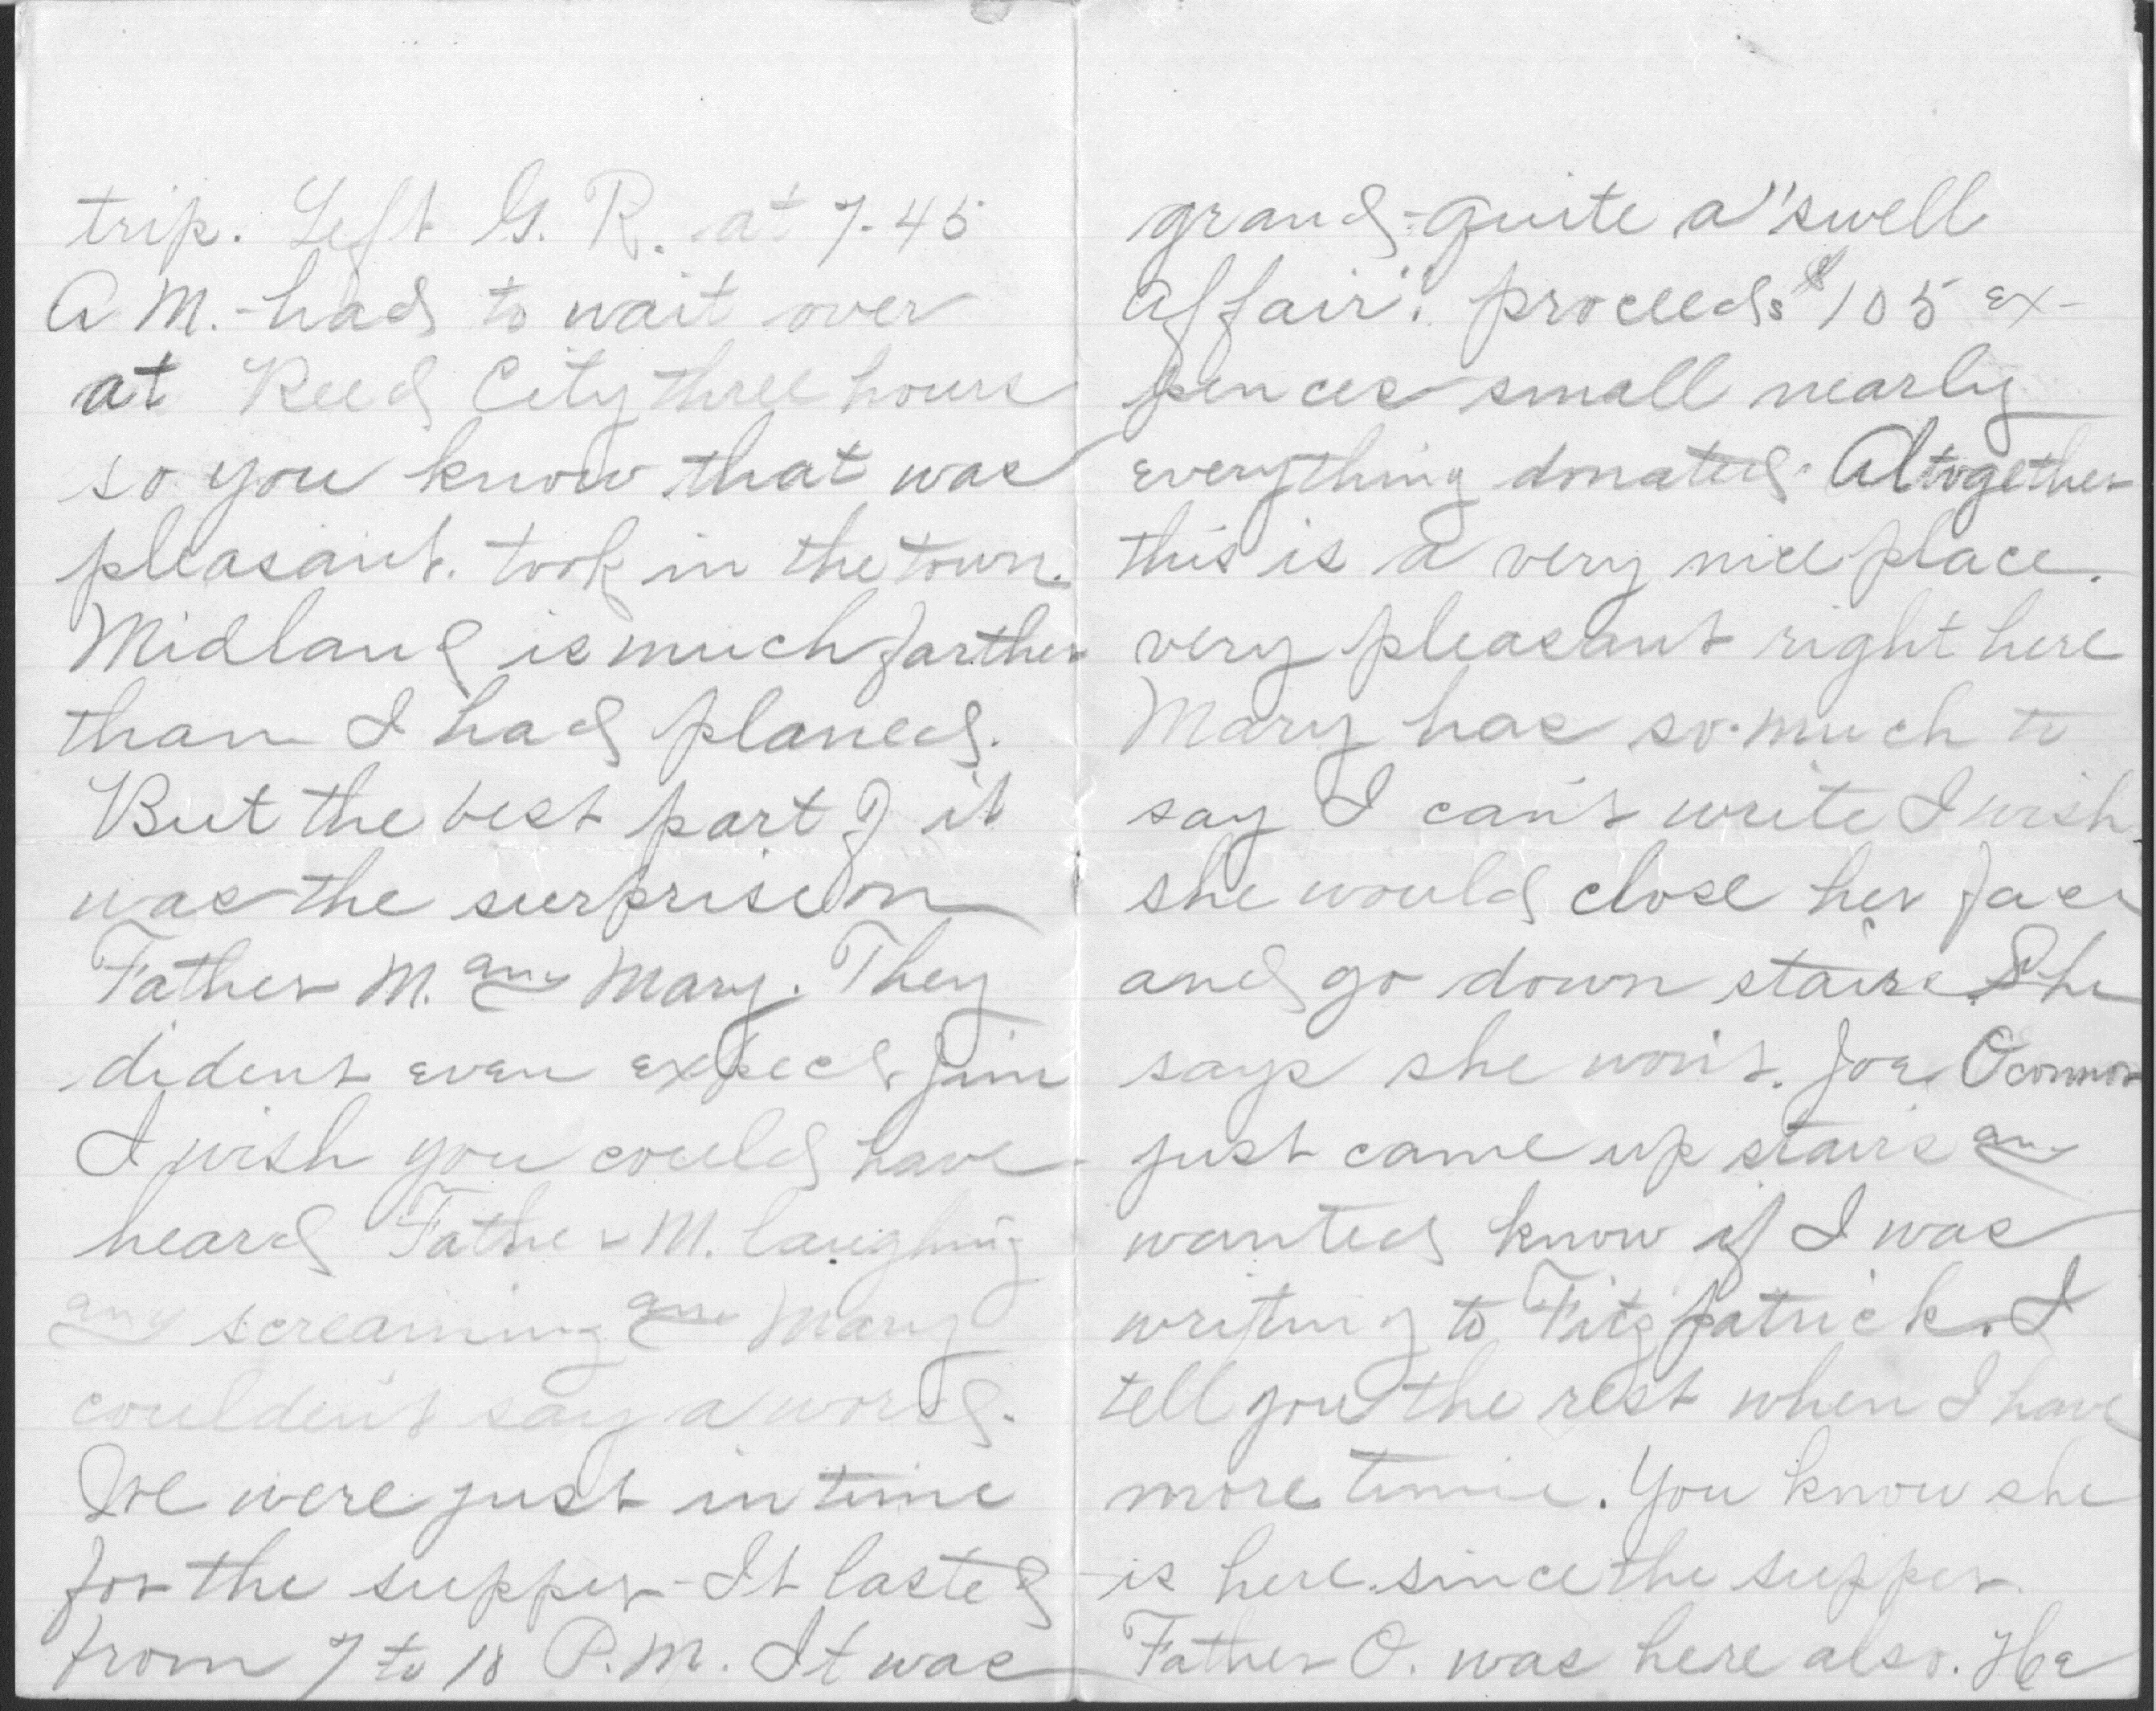 trip. Left G. R. at 7-45
A. M. - had to wait over
at Reed City three hours
so you know that was
pleasant. took in the town.
Midland is much farther
than I had planed.
But the best part of it
was the surprise on
Father M. and Mary. They
dident even expect Jim
I wish you could have
heard Father M. laughing
and screaming and Mary
couldent say a word.
We were just in time
for the supper - It lasted
from 7 to 10 P.M. It was
grand - quite a "swell
affair". proceeds $105 ex-
pences small nearly
everything donated. Altogether
this is a very nice place.
very pleasant right here
Mary has so much to
say I can't write I wish
she would close her face
and go down stairs. She
says she won't. Joe Oconnor
just came up stairs and
wanted know if I was
writing to Fitzpatrick. I
tell you the rest when I have
more time. You know she
is here since the supper.
Father O. was here also. He